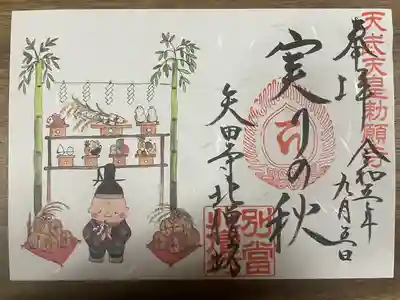 天武天皇勅願所
奉拝
令和五年九月五日
実りの秋
矢田寺北僧坊
別當